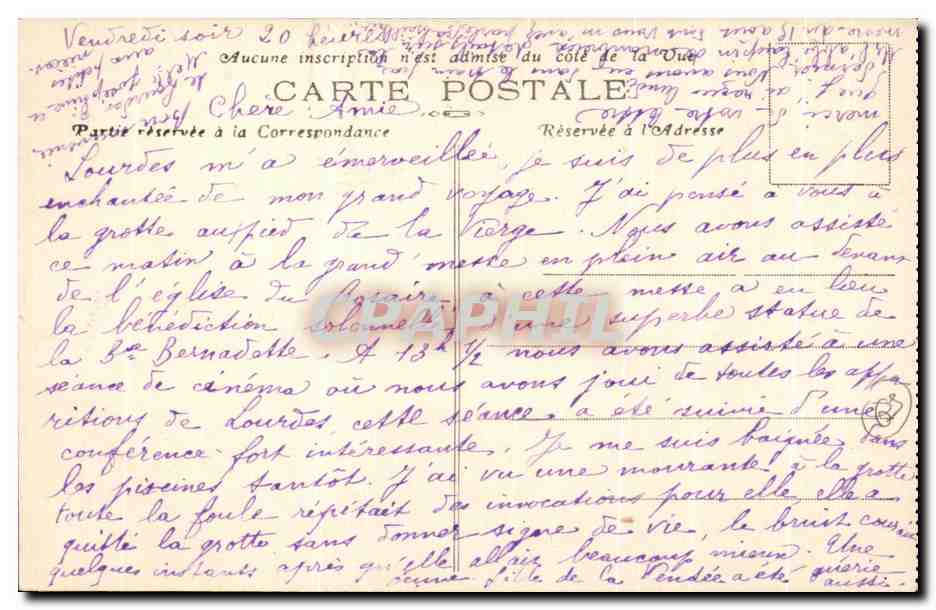 Vendredi soir 20 heures
Aucune inscription n'est admise du côté de la Vue
CARTE POSTALE
Chere Amie
Partie réservée à la Correspondance
Réservée à l'Adresse
Lourdes m'a émerveillée, je suis de plus en plus
enchantée de mon grand voyage. J'ai pensé à vous à
la grotte au pied de la Vierge. Nous avons assisté
ce matin à la grand'messe en plein air au devant
de l'église du Rosaire, à cette messe a eu lieu
la bénédiction solonnelle d'une superbe statue de
la Bse Bernadette. A 13h 1/2 nous avons assisté à une
séance de cinéma où nous avons joui de toutes les appa
ritions de Lourdes cette séance a été suivie d'une
conférence fort intéressante. Je me suis baignée dans
les piscines tantôt. J'ai vu une mourante à la grotte
toute la foule répétait des invocations pour elle, elle a
quitté la grotte sans donner signe de vie, le bruit courait
quelques instants après qu'elle allait beaucoup mieux. Une
jeune fille de la Vendée a été guérie
aussi.
CPAPHIL